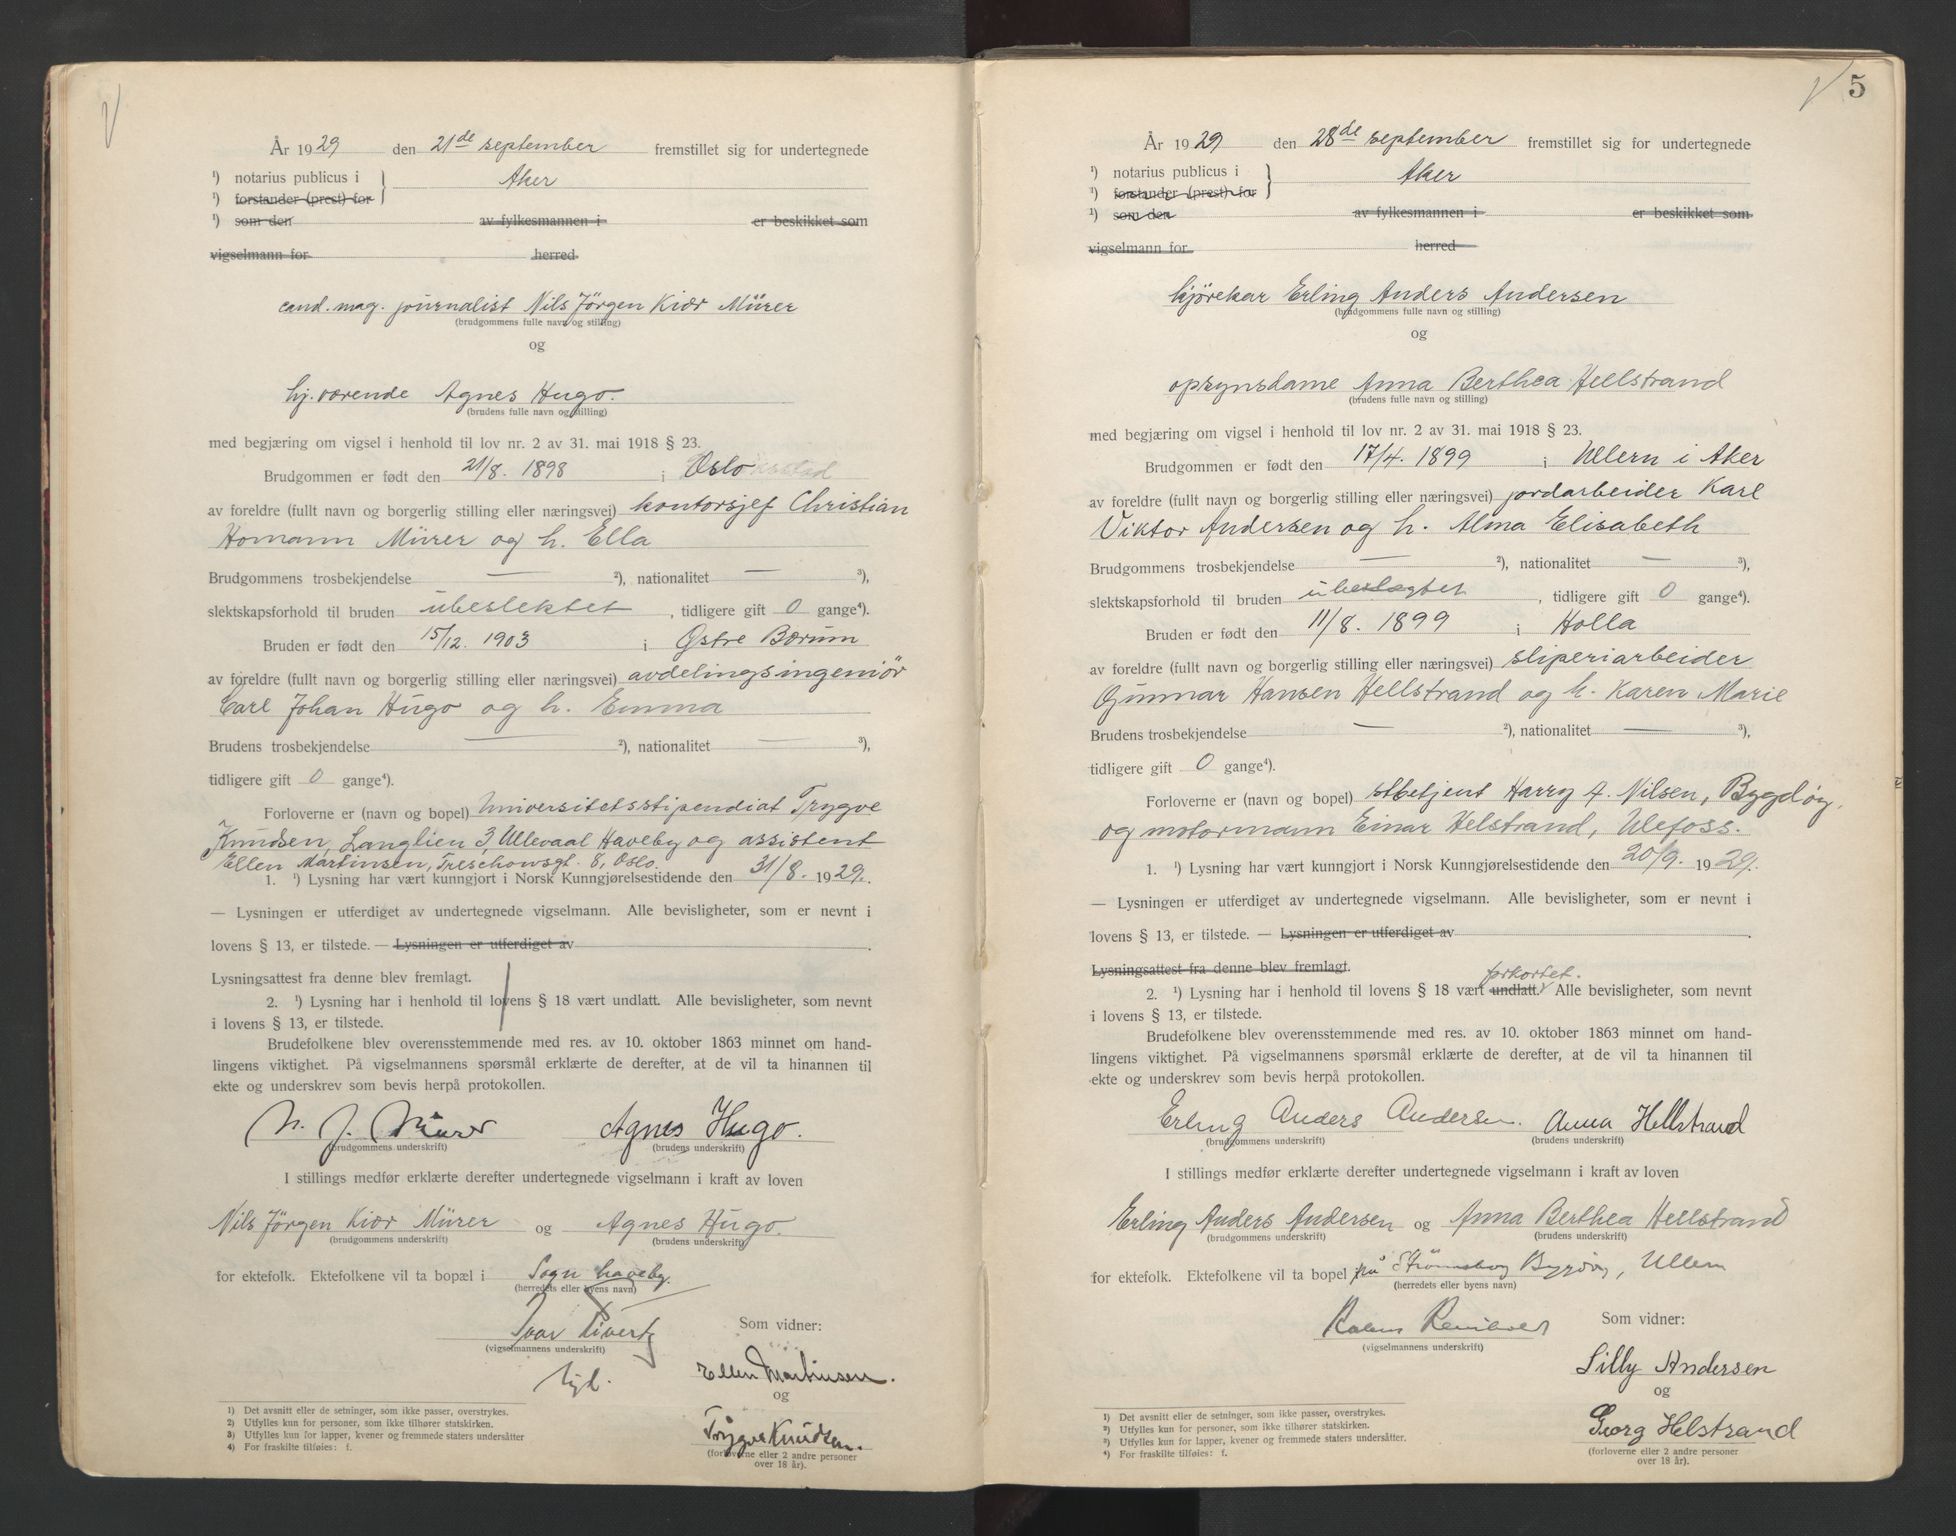 År 1929 den 21de september fremstillet sig for undertegnede
¹) notarius publicus i } Aker
¹) forstander (prest) for
¹) som den av fylkesmannen i er beskikket som
vigselmann for herred
cand. mag. journalist Nils Jörgen Kiær Mürer
(brudgommens fulle navn og stilling)
og
hj. værende Agnes Hugo.
(brudens fulle navn og stilling)
med begjæring om vigsel i henhold til lov nr. 2 av 31. mai 1918 § 23.
Brudgommen er født den 21/8. 1898 i Oslo
av foreldre (fullt navn og borgerlig stilling eller næringsvei) kontorsjef Christian
Homann Mürer og h. Ella
Brudgommens trosbekjendelse — ²), nationalitet — ³),
slektskapsforhold til bruden ubeslektet, tidligere gift 0 gange⁴).
Bruden er født den 15/12. 1903 i Østre Bærum
av foreldre (fullt navn og borgerlig stilling eller næringsvei) avdelingsingeniör
Carl Johan Hugo og h. Emma
Brudens trosbekjendelse — ²), nationalitet — ³),
tidligere gift 0 gange⁴).
Forloverne er (navn og bopel) Universitetsstipendiat Trygve
Knudsen, Langlien 3, Ullevaal Haveby og assistent
Ellen Martinsen, Treschowsgt. 8, Oslo.
1. ¹) Lysning har vært kunngjort i Norsk Kunngjørelsestidende den 31/8. 1929.
— Lysningen er utferdiget av undertegnede vigselmann. Alle bevisligheter, som er nevnt i
lovens § 13, er tilstede. — Lysningen er utferdiget av .
Lysningsattest fra denne blev fremlagt.
2. ¹) Lysning har i henhold til lovens § 18 vært undlatt. Alle bevisligheter, som nevnt
i lovens § 13, er tilstede.
Brudefolkene blev overensstemmende med res. av 10. oktober 1863 minnet om hand-
lingens viktighet. På vigselmannens spørsmål erklærte de derefter, at de vil ta hinannen til
ekte og underskrev som bevis herpå protokollen.
N. J. Mürer Agnes Hugo.
(brudgommens underskrift) (brudens underskrift)
I stillings medfør erklærte derefter undertegnede vigselmann i kraft av loven
Nils Jörgen Kiær Mürer og Agnes Hugo.
(brudgommens underskrift) (brudens underskrift)
for ektefolk. Ektefolkene vil ta bopæl i Sogn haveby.
(herredets eller byens navn)
Som vidner:
(vigselmannens underskrift)
Ellen Martinsen.
og
Trygve Knudsen.
(forloverne eller 2 andre personer
over 18 år).
1) Det avsnitt eller de setninger, som ikke passer, overstrykes.
2) Utfylles kun for personer, som ikke tilhører statskirken.
3) Utfylles kun for lapper, kvener og fremmede staters undersåtter
4) For fraskilte tilføies: f.
5
År 1929 den 28de september fremstillet sig for undertegnede
¹) notarius publicus i } Aker
¹) forstander (prest) for
¹) som den av fylkesmannen i er beskikket som
vigselmann for herred
kjörekar Erling Anders Andersen
(brudgommens fulle navn og stilling)
og
opsynsdame Anna Berthea Hellstrand
(brudens fulle navn og stilling)
med begjæring om vigsel i henhold til lov nr. 2 av 31. mai 1918 § 23.
Brudgommen er født den 17/4. 1899 i Ullern i Aker
av foreldre (fullt navn og borgerlig stilling eller næringsvei) jordarbeider Karl
Viktor Andersen og h. Alma Elisabeth
Brudgommens trosbekjendelse — ²), nationalitet — ³),
slektskapsforhold til bruden ubeslægtet, tidligere gift 0 gange⁴).
Bruden er født den 11/8. 1899 i Holla
av foreldre (fullt navn og borgerlig stilling eller næringsvei) sliperiarbeider
Gunnar Hansen Hellstrand og h. Karen Marie
Brudens trosbekjendelse — ²), nationalitet — ³),
tidligere gift 0 gange⁴).
Forloverne er (navn og bopel) Harry A. Nilsen, Bygdöy,
og motormann Einar Helstrand, Ulefoss.
1. ¹) Lysning har vært kunngjort i Norsk Kunngjørelsestidende den 20/9. 1929.
— Lysningen er utferdiget av undertegnede vigselmann. Alle bevisligheter, som er nevnt i
lovens § 13, er tilstede. — Lysningen er utferdiget av .
Lysningsattest fra denne blev fremlagt. forkortet.
2. ¹) Lysning har i henhold til lovens § 18 vært undlatt. Alle bevisligheter, som nevnt
i lovens § 13, er tilstede.
Brudefolkene blev overensstemmende med res. av 10. oktober 1863 minnet om hand-
lingens viktighet. På vigselmannens spørsmål erklærte de derefter, at de vil ta hinannen til
ekte og underskrev som bevis herpå protokollen.
Erling Anders Andersen. Anna Hellstrand
(brudgommens underskrift) (brudens underskrift)
I stillings medfør erklærte derefter undertegnede vigselmann i kraft av loven
Erling Anders Andersen og Anna Berthea Hellstrand
(brudgommens underskrift) (brudens underskrift)
for ektefolk. Ektefolkene vil ta bopel på Strömsborg Bygdöy, Ullern
(herredets eller byens navn)
Som vidner:
(vigselmannens underskrift)
Lilly Andersen
og
Georg Helstrand
(forloverne eller 2 andre personer
over 18 år).
¹) Det avsnitt eller de setninger, som ikke passer, overstrykes.
²) Utfylles kun for personer, som ikke tilhører statskirken.
³) Utfylles kun for lapper, kvener og fremmede staters undersåtter.
⁴) For fraskilte tilføies: f.